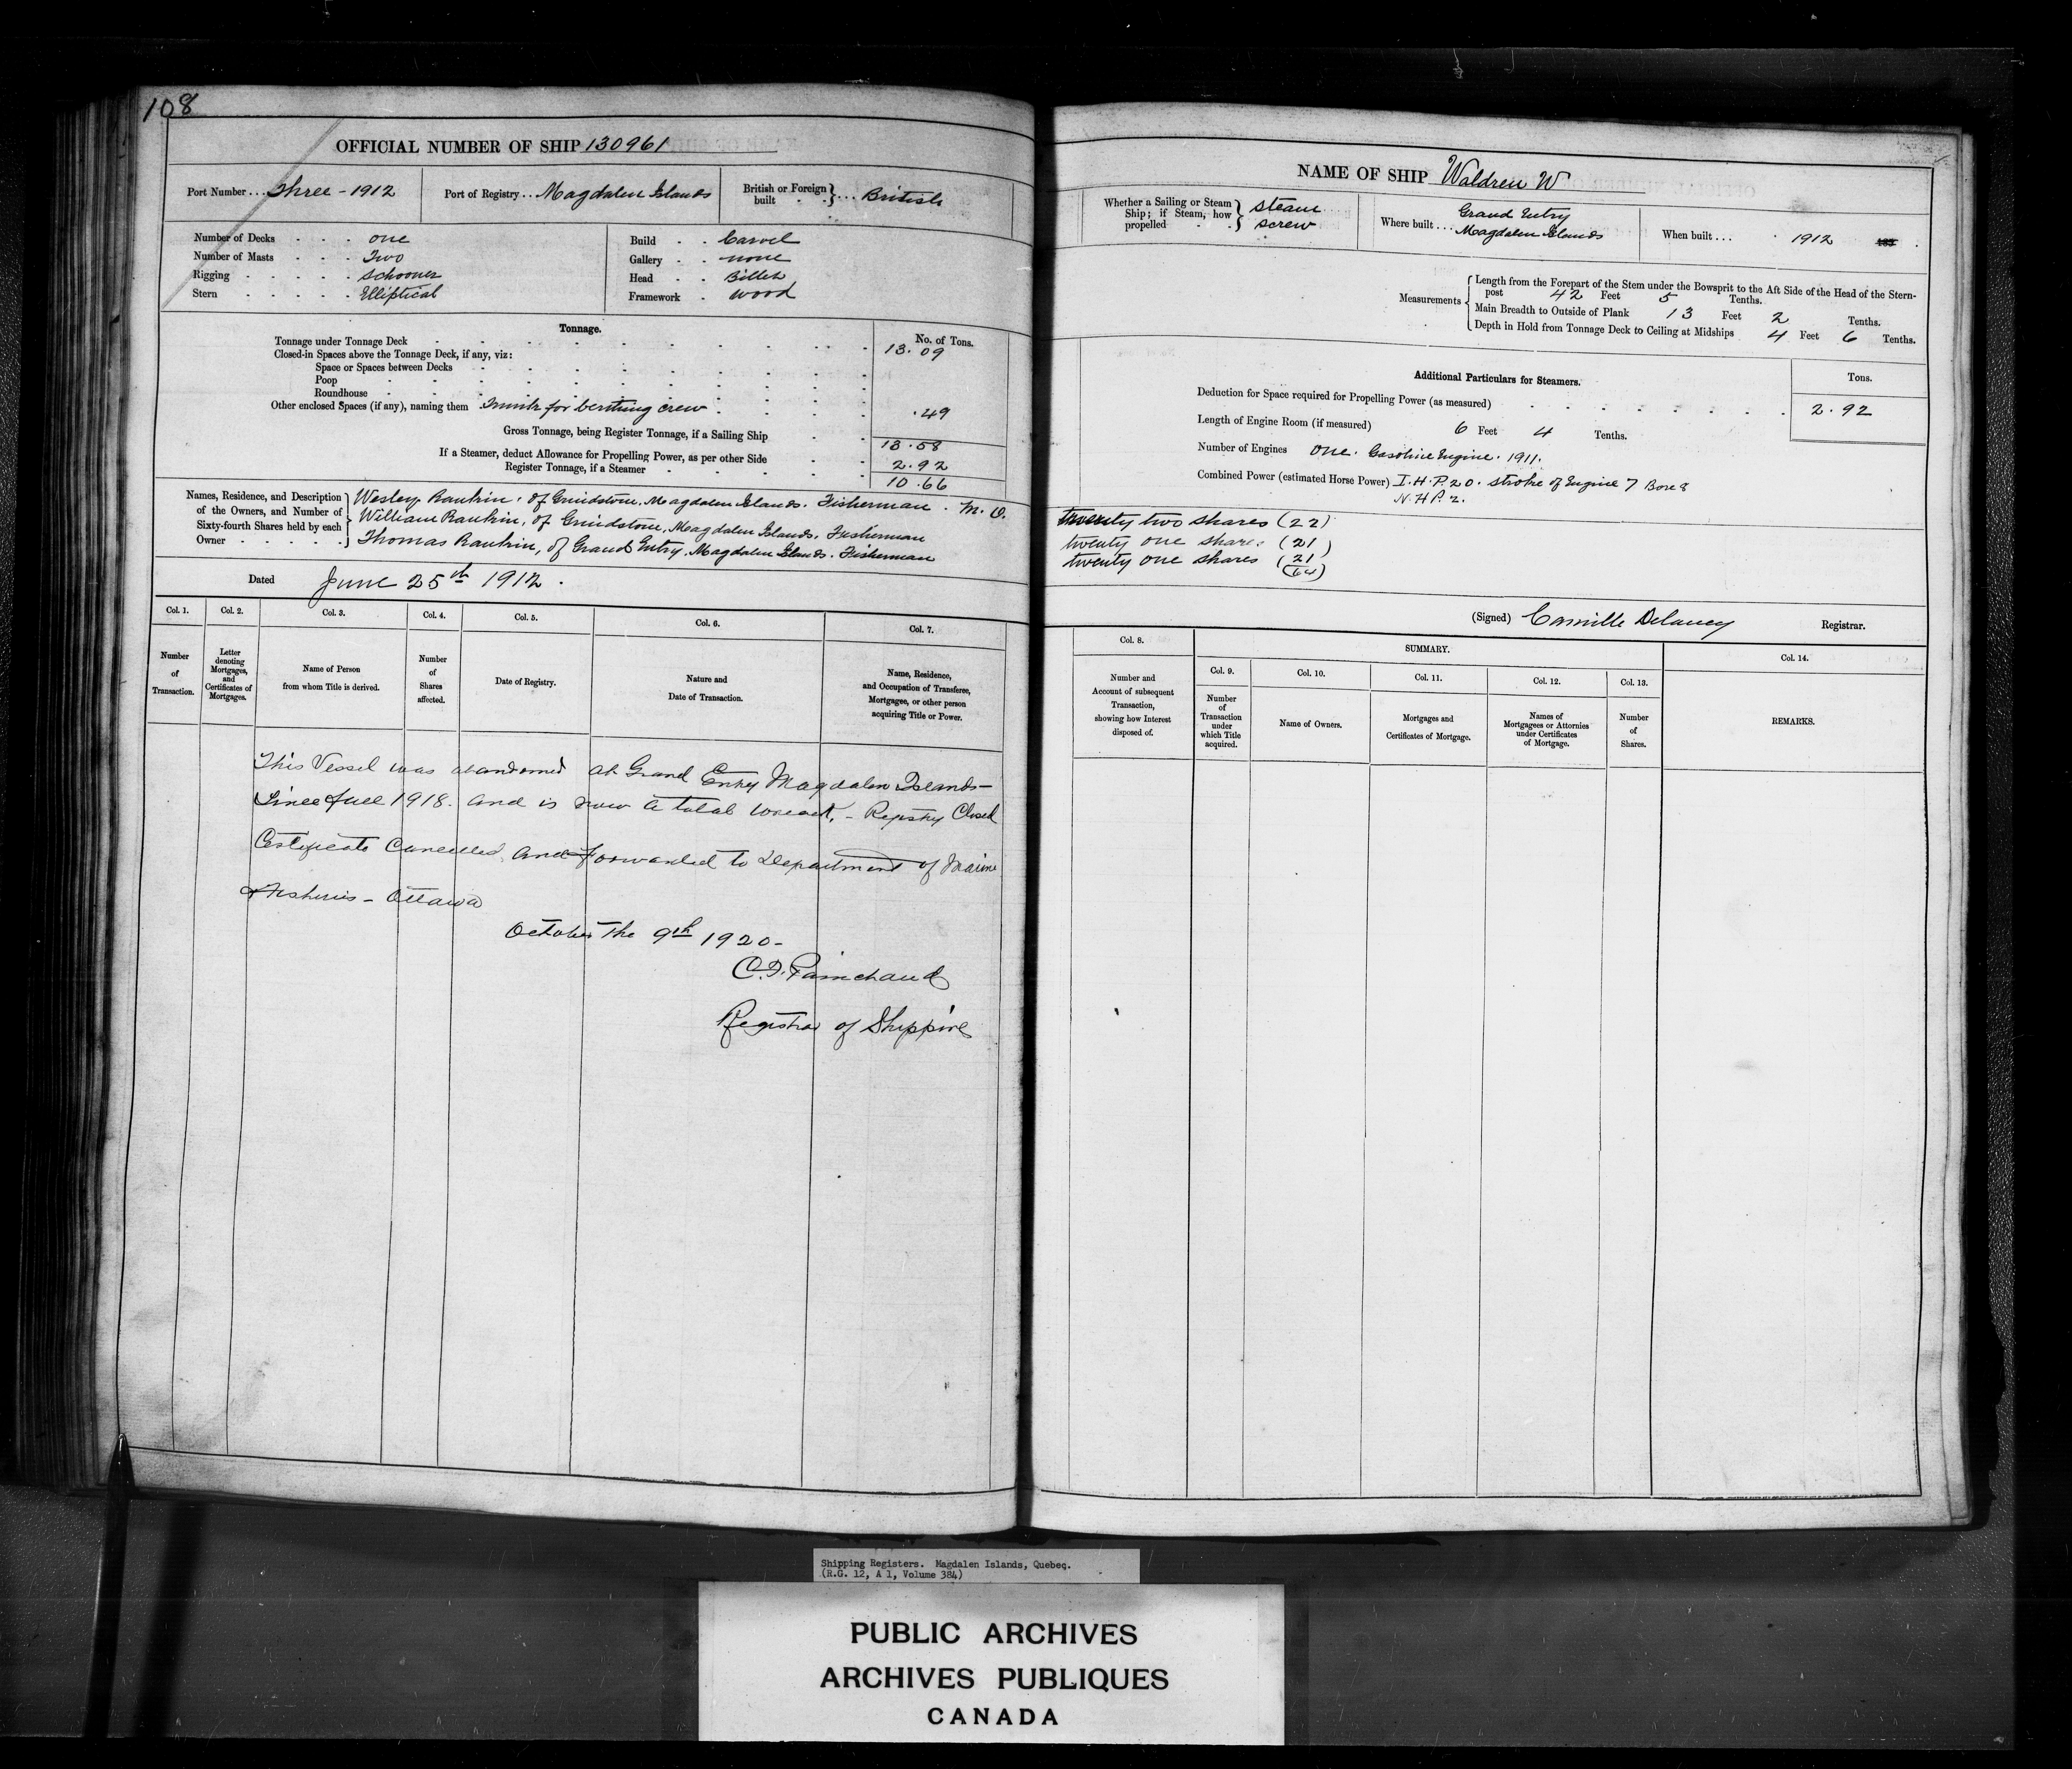 108
OFFICIAL NUMBER OF SHIP 130961
Port Number . . . Three - 1912
Port of Registry . . . Magdalen Islands
British or Foreign built . . . British
Number of Decks . . . one
Number of Masts . . . Two
Rigging . . . . . Schooner
Stern . . . . . Elliptical
Build . . Carvel
Gallery . . none
Head . . Billet
Framework . wood
Tonnage.
No. of Tons.
Tonnage under Tonnage Deck 13.09
Closed-in Spaces above the Tonnage Deck, if any, viz:
Space or Spaces between Decks
Poop
Roundhouse
Other enclosed Spaces (if any), naming them for berthing crew .49
Gross Tonnage, being Register Tonnage, if a Sailing Ship 13.58
If a Steamer, deduct Allowance for Propelling Power, as per other Side 2.92
Register Tonnage, if a Steamer 10.66
Names, Residence, and Description of the Owners, and Number of Sixty-fourth Shares held by each Owner
Wesley Rankin, of Grindstone, Magdalen Islands. Fisherman. M.O.
William Rankin, of Grindstone, Magdalen Islands, Fisherman
Thomas Rankin, of Grand Entry, Magdalen Islands. Fisherman
Dated June 25th 1912.
Col. 1. Col. 2. Col. 3. Col. 4. Col. 5. Col. 6. Col. 7.
Number of Transaction.
Letter denoting Mortgages, and Certificates of Mortgages.
Name of Person from whom Title is derived.
Number of Shares affected.
Date of Registry.
Nature and Date of Transaction.
Name, Residence, and Occupation of Transferee, Mortgagee, or other person acquiring Title or Power.
This Vessel was abandoned at Grand Entry Magdalen Islands -
Since fall 1918. and is now a total wreck, - Registry Closed
Certificate Cancelled, and forwarded to Department of Marine
& Fisheries - Ottawa
October The 9th 1920 -
Painchaud
Registrar of Shipping
NAME OF SHIP Waldren W
Whether a Sailing or Steam Ship; if Steam, how propelled steam screw
Where built . . . Grand Entry Magdalen Islands
When built . . . 1912
Measurements
Length from the Forepart of the Stem under the Bowsprit to the Aft Side of the Head of the Stern-
post 42 Feet 5 Tenths.
Main Breadth to Outside of Plank 13 Feet 2 Tenths.
Depth in Hold from Tonnage Deck to Ceiling at Midships 4 Feet 6 Tenths.
Additional Particulars for Steamers.
Tons.
Deduction for Space required for Propelling Power (as measured) 2.92
Length of Engine Room (if measured) 6 Feet 4 Tenths.
Number of Engines One. Gasoline Engine. 1911.
Combined Power (estimated Horse Power) I.H.P. 20. stroke of Engine 7 Bore 8
N.H.P. 2.
twenty two shares (22)
twenty one shares (21)
twenty one shares (21)
(64)
(Signed) Camille Delaney Registrar.
Col. 8.
Number and Account of subsequent Transaction, showing how Interest disposed of.
SUMMARY.
Col. 9. Col. 10. Col. 11. Col. 12. Col. 13. Col. 14.
Number of Transaction under which Title acquired.
Name of Owners.
Mortgages and Certificates of Mortgage.
Names of Mortgagees or Attornies under Certificates of Mortgage.
Number of Shares.
REMARKS.
Shipping Registers. Magdalen Islands, Quebec.
(R.G. 12, A 1, Volume 384)
PUBLIC ARCHIVES
ARCHIVES PUBLIQUES
CANADA